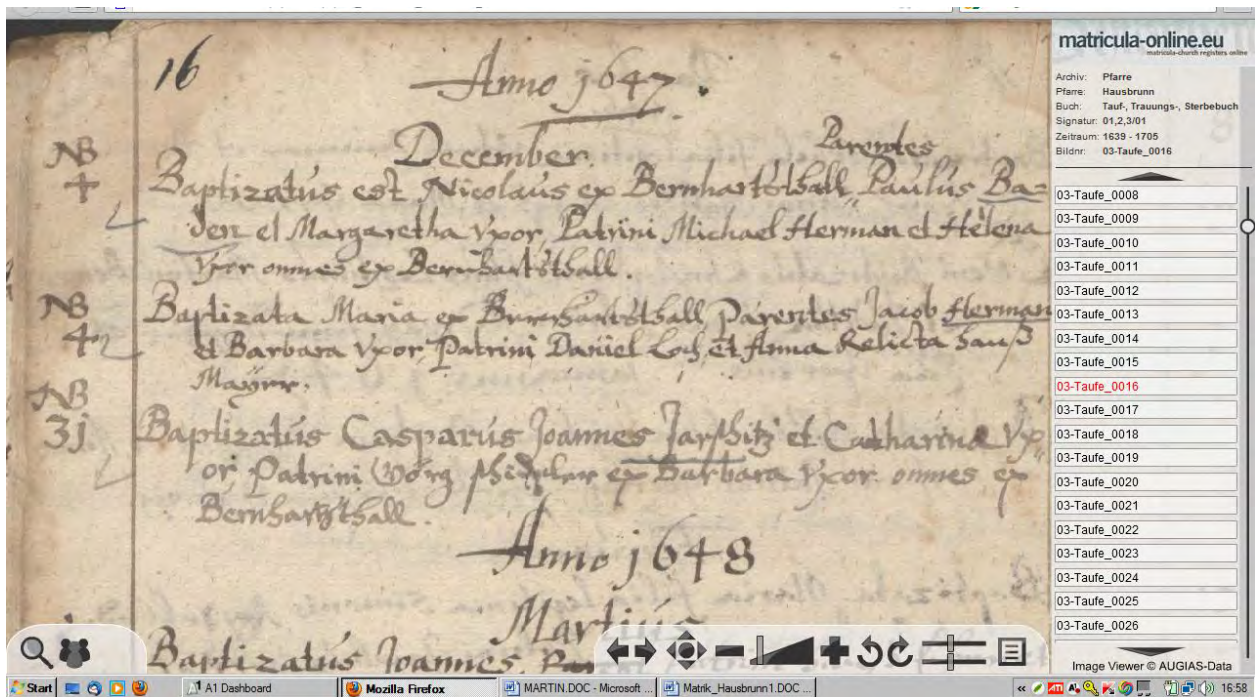 16
Anno 1647.
December.
Parentes
NB
Baptizatus est Nicolaus ex Bernhartsthall Paulus Ba=
den et Margaretha Vxor, Patrini Michael Herman et Helena
Vxor omnes ex Bernhartsthall.
NB
4
Baptizata Maria ex Bernhartsthall Parentes Jacob Herman
et Barbara Vxor, Patrini Daniel Loch, et Anna Relicta Hauß
Mayer.
NB
31
Baptizatus Casparus Joannes et Catharina Vx=
or, Patrini Görg ex Barbara Vxor omnes ex
Bernhartsthall.
Anno 1648
Martius
Baptizatus Joannes.
matricula-online.eu
matricula-church registers online
Archiv: Pfarre
Pfarre: Hausbrunn
Buch: Tauf-, Trauungs-, Sterbebuch
Signatur: 01,2,3/01
Zeitraum: 1639 - 1705
Bildnr: 03-Taufe_0016
03-Taufe_0008
03-Taufe_0009
03-Taufe_0010
03-Taufe_0011
03-Taufe_0012
03-Taufe_0013
03-Taufe_0014
03-Taufe_0015
03-Taufe_0016
03-Taufe_0017
03-Taufe_0018
03-Taufe_0019
03-Taufe_0020
03-Taufe_0021
03-Taufe_0022
03-Taufe_0023
03-Taufe_0024
03-Taufe_0025
03-Taufe_0026
Image Viewer © AUGIAS-Data
Start
A1 Dashboard
Mozilla Firefox
MARTIN.DOC - Microsoft ...
Matrik_Hausbrunn1.DOC ...
16:59